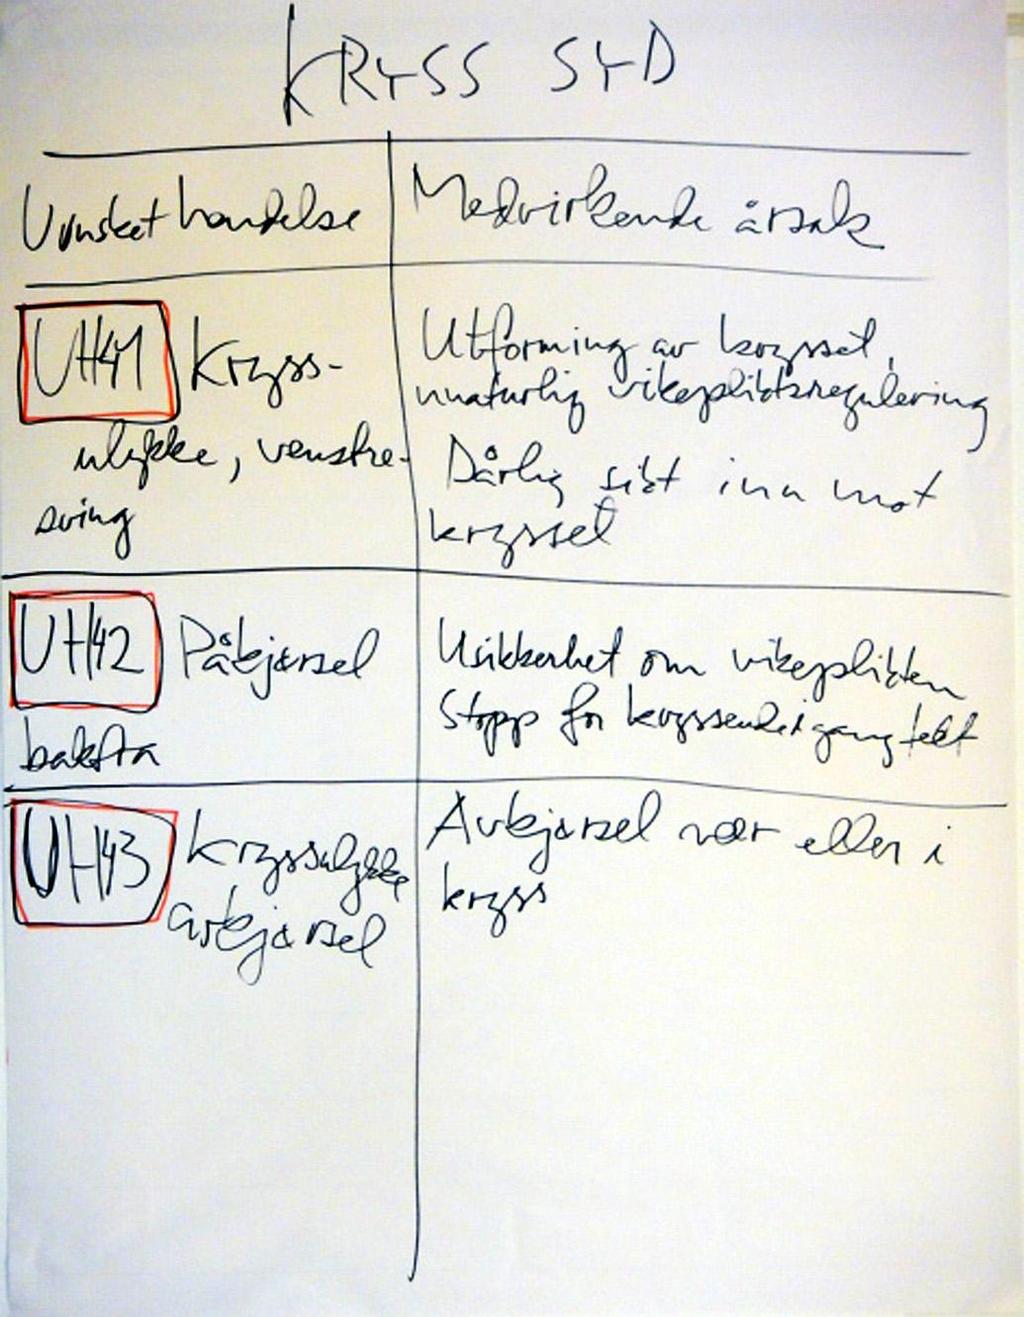 KRYSS SYD
Uønsket hendelse
Medvirkende årsak
UH41 Kryss-
ulykke, venstre-
sving
Utforming av krysset,
unaturlig vikepliktsregulering
Dårlig sikt inn mot
krysset
UH42 Påkjørsel
bakfra
Usikkerhet om vikeplikten
Stopp for kryssende gangtrafikk
UH43 Kryssulykke
avkjørsel
Avkjørsel nær eller i
kryss